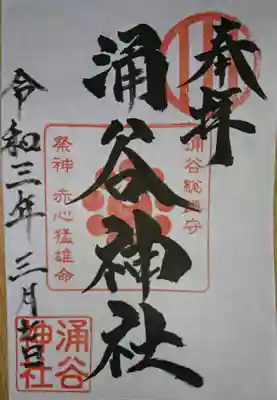 奉拝
涌谷総鎮守
涌谷神社
祭神 赤心猛雄命
令和三年 三月 七日
涌谷
神社